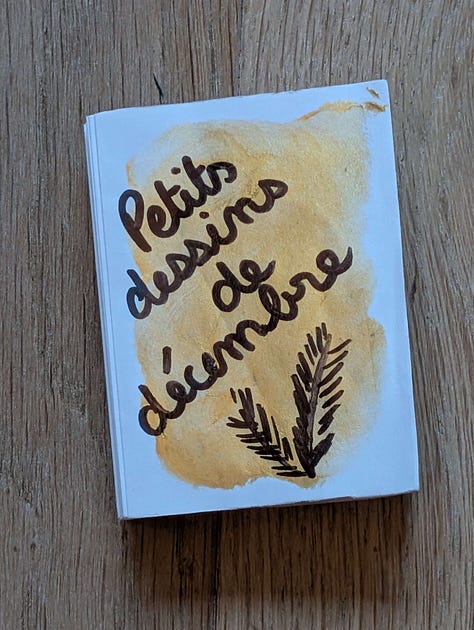 Petits
dessins
de
décembre